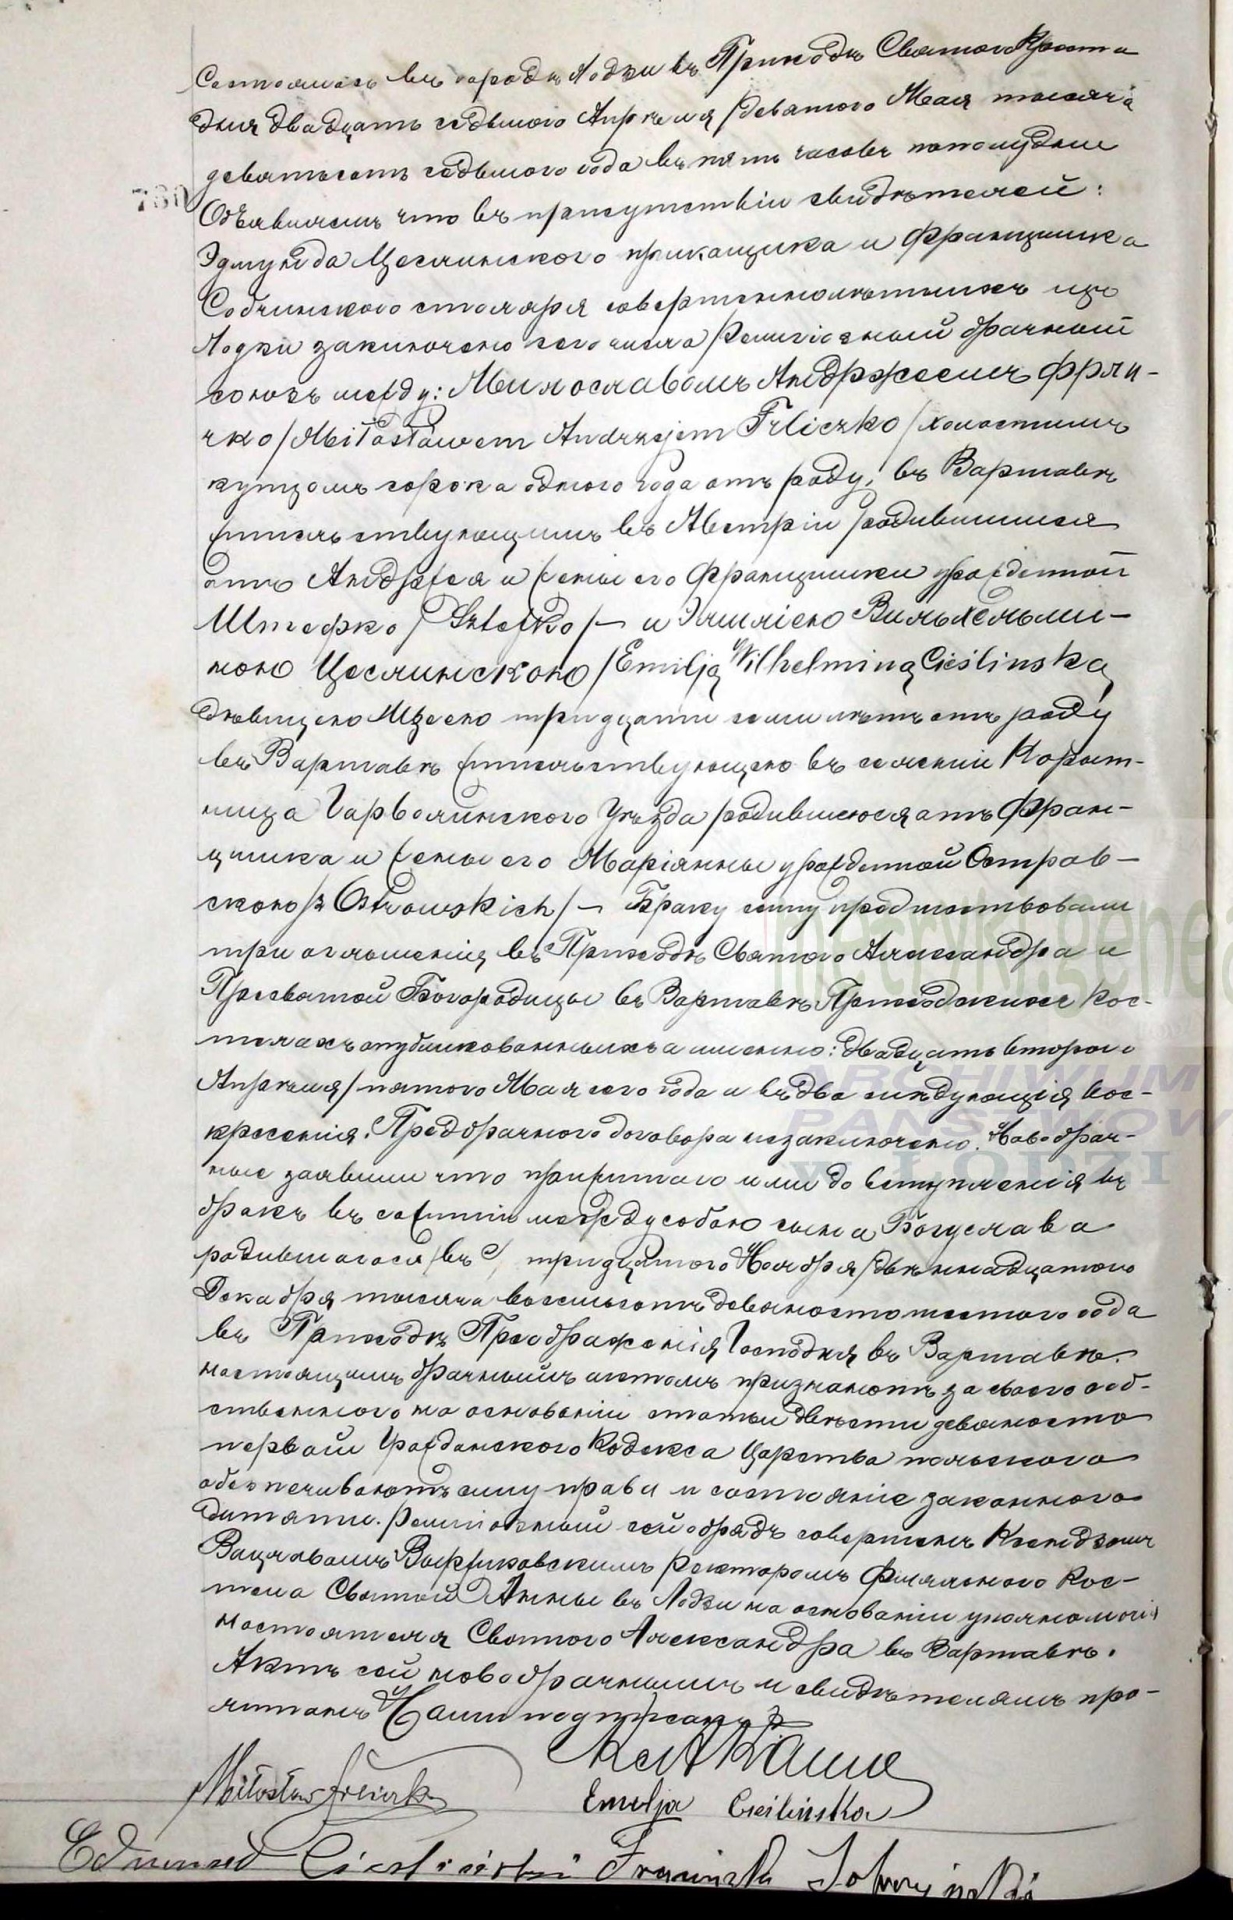 Состоялось въ городѣ Лодзи въ Приходѣ Святого Креста
дня двадцать седьмого Апрѣля /девятого Мая тысяча
девятьсотъ седьмого года въ пять часовъ пополудни
730
Объявляемъ что въ присутствіи свидѣтелей:
Эдмунда Цеслинского прикащика и Францишка
Собчинского столяра совершеннолѣтнихъ изъ
Лодзи заключено сего числа Религіозный брачный
союзъ между: Милославомъ Андржеемъ Фрли-
чко /Miłosławem Andrzejem Frliczko/ холостымъ
купцомъ сорока одного года отъ роду, въ Варшавѣ
жительствующимъ въ Австріи родившимся
отъ Андржея и жены его Францишки урожденной
Штефко /Sztefko/— и Эмиліею Вильхельми-
ною Цеслинскою /Emilją Wilhelminą Cieślinską
дѣвицею тридцати семи лѣтъ отъ роду
въ Варшавѣ жительствующею въ селеніи Корыт-
ница Гарволинского Уѣзда родившеюся отъ Фран-
цишка и жены его Маріянны урожденной Остров-
скою /z Ostrowskich/— Браку сему предшествовали
три оглашенія въ Приходѣ Святого Александра и
Пресвятой Богородицы въ Варшавѣ Приходскихъ Кос-
телахъ опубликованныхъ а именно: двадцать второго
Апрѣля /пятого Мая сего года и въ два слѣдующія вос-
кресенія. Предбрачного договора незаключено. Новобрач-
ные заявили что прижитого ими до вступленія въ
бракъ въ сожитіи между собою сына Богуслава
родившагося тридцятого Ноября /двѣнадцатого
Декабря тысяча восемьсотъ девяносто шестого года
въ Приходѣ Преображенія Господня въ Варшавѣ.
настоящимъ брачнымъ актомъ признаютъ за своего соб-
ственного на основаніи статьи двѣсти девяносто
первой Гражданского Кодекса Царства польского
обезпечиваютъ ему права и состояніе законного
дитяти. Религіозный сей обрядъ совершенъ Ксендзомъ
Вацлавомъ Ректоромъ Филяльного Кос-
тела Святой Анны въ Лодзи на основаніи уполномочія
настоятеля Святого Александра въ Варшавѣ.
Актъ сей новобрачнымъ и свидѣтелямъ про-
читанъ Нами подписанъ
Miłosław Frliczko
Emilja Cieślińska
Edmund Cieśliński Franciszek Sobczyński
ARCHIWUM
PAŃSTWOW
w ŁODZI